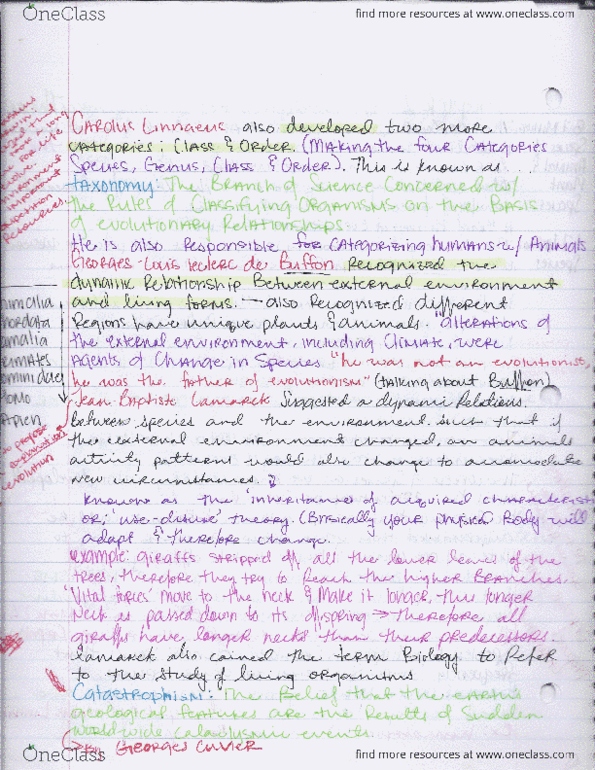 OneClass
find more resources at www.oneclass.com
Carolus Linnaeus also developed two more
categories: Class & Order. (Making the four categories
Species, Genus, Class & Order). This is known as...
taxonomy: The Branch of Science Concerned w/
the Rules of Classifying Organisms on the Basis
of evolutionary Relationships.
He is also responsible for categorizing humans w/ Animals
Georges-Louis leclerc de Buffon Recognized the
dynamic Relationship Between external environment
and living forms. → also Recognized different
Regions have unique plants & animals. "alterations of
the external environment, including Climate, were
Agents of Change in Species "he was not an evolutionist,
he was the father of evolutionism" (talking about Buffon)
Jean-Baptiste Lamarck Suggested a dynamic Relations.
between species and the environment such that if
the external environment changed, an animals
activity patterns would also change to accomodate
new circumstances.
known as the 'inheritance of acquired characterist
or; 'use-disuse' theory. (Basically your physical Body will
adapt & therefore change.
example: giraffs stripped off all the lower leaves of the
trees, therefore they try to Reach the higher Branches.
'Vital forces' move to the neck & Make it longer, this longer
Neck is passed down to its offspring → therefore all
giraffs have longer necks than their predecessors.
Lamarck also coined the term Biology to Refer
to the study of living organisms
Catastrophism: The Belief that the earths
geological features are the Results of Sudden
worldwide cataclysmic events.
Georges Cuvier
malia
hordata
amalia
rimates
ominidae
Homo
apien
evolution
OneClass
find more resources at www.oneclass.com